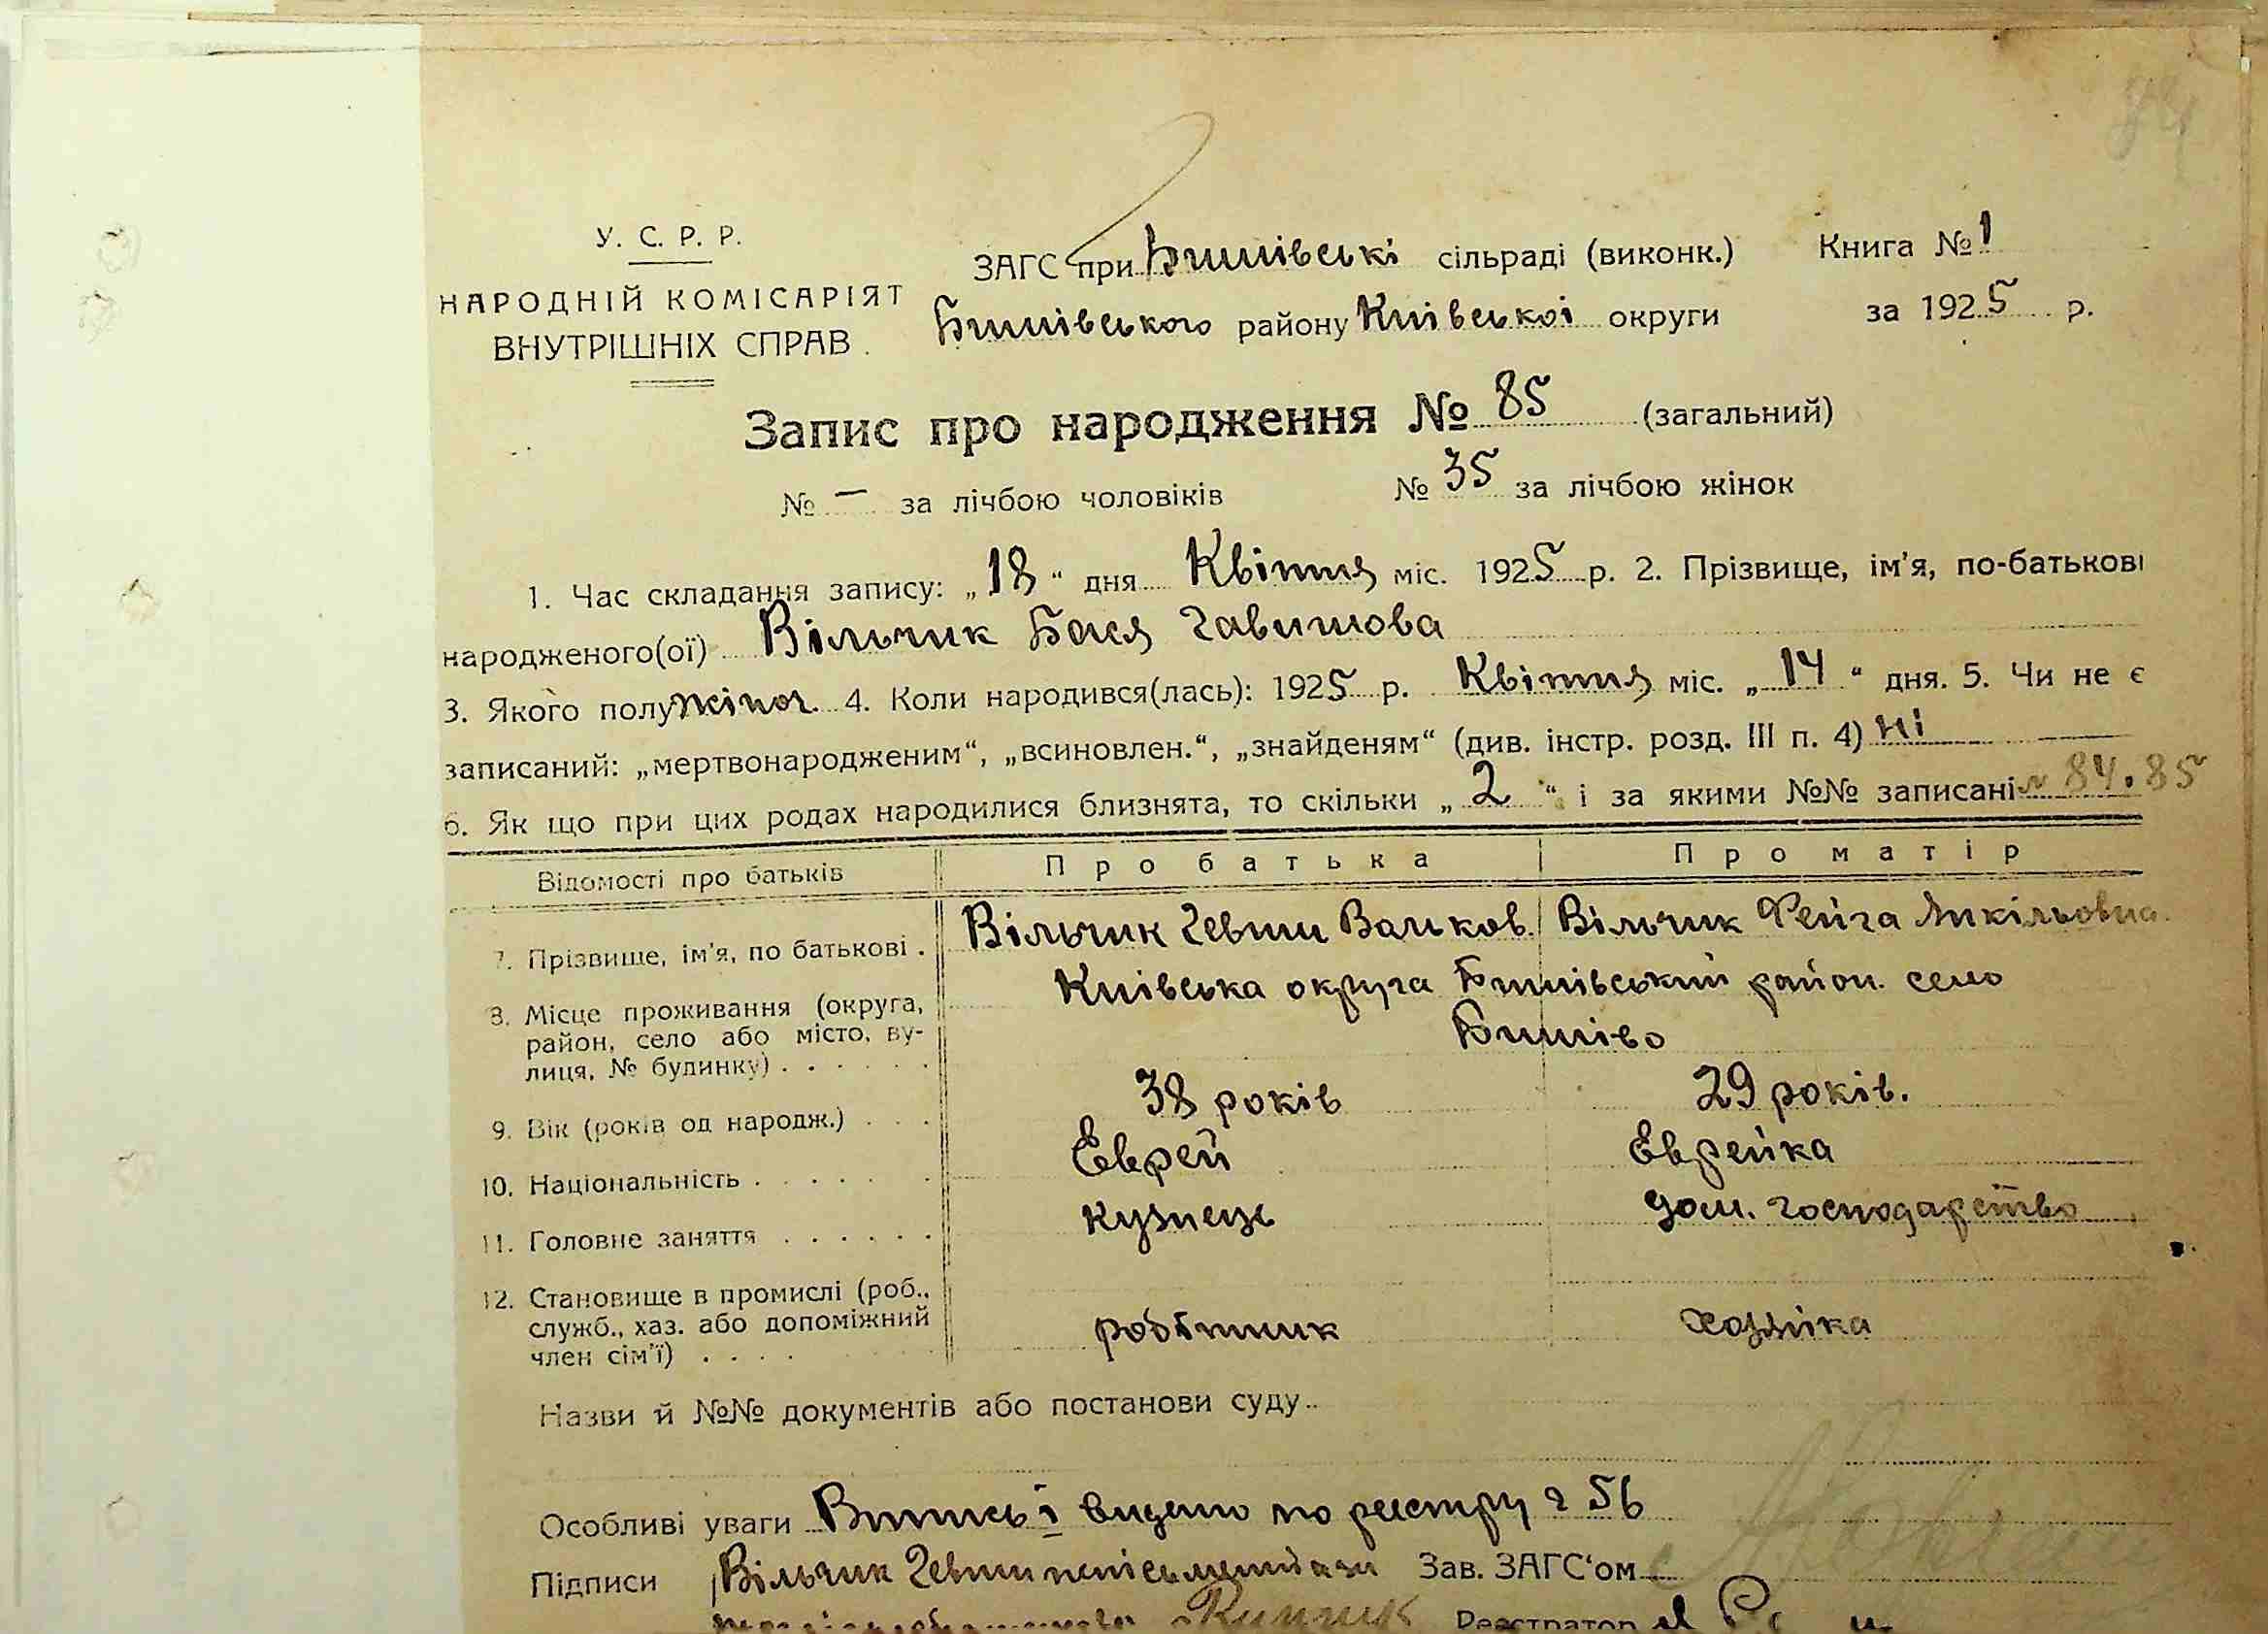 У. С. Р. Р.
НАРОДНІЙ КОМІСАРІЯТ
ВНУТРІШНІХ СПРАВ.
ЗАГС при Бишівські сільраді (виконк.) Книга № 1
Бишівського району Київської округи за 1925 р.
Запис про народження № 85 (загальний)
№ — за лічбою чоловіків № 35 за лічбою жінок
1. Час складання запису: „18“ дня Квітня міс. 1925 р. 2. Прізвище, ім'я, по-батькові
народженого(ої) Вільчик Бася Гавишова
3. Якого полу жіноч. 4. Коли народився(лась): 1925 р. Квітня міс. „14“ дня. 5. Чи не є
записаний: „мертвонародженим“, „всиновлен.“, „знайденям“ (див. інстр. розд. III п. 4) ні
6. Як що при цих родах народилися близнята, то скільки „2“ і за якими №№ записані 84.85
Відомості про батьків Про батька Про матір
7. Прізвище, ім'я, по батькові . Вільчик Гевши Вольков. Вільчик Фейга Микільовна.
8. Місце проживання (округа, район, село або місто, вулиця, № будинку) . . . . . . Київська округа Бишівський район. село
Бишіво
9. Вік (років од народж.) . . . 38 років 29 років.
10. Національність . . . . . . Еврей Еврейка
11. Головне заняття . . . . . . кузнець дом. господарство
12. Становище в промислі (роб., служб., хаз. або допоміжний член сім'ї) . . . . робітник хозяйка
Назви й №№ документів або постанови суду..
Особливі уваги Випись і видано по реєстру 56
Підписи Вільчик Гевши Зав. ЗАГС'ом
Реєстратор